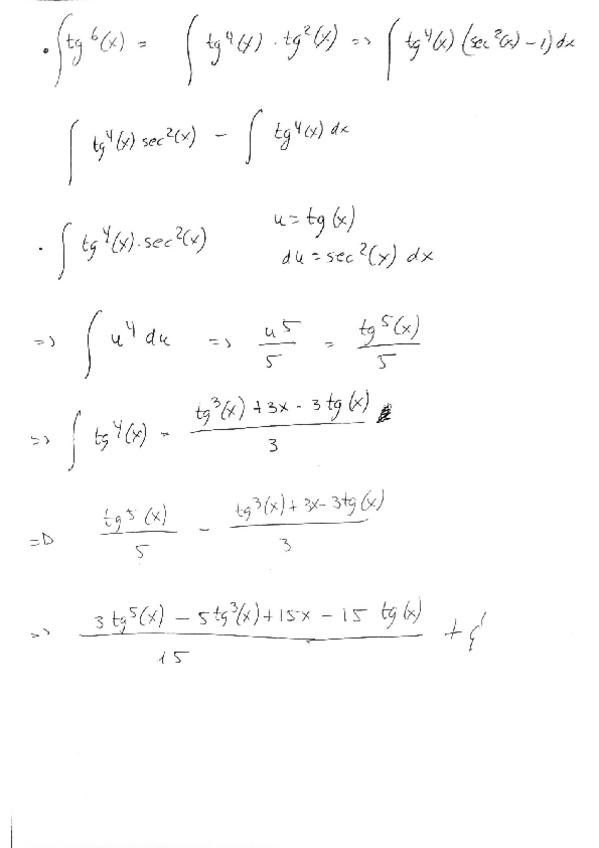 • ∫ tg⁶(x) = ∫ tg⁴(x) · tg²(x) => ∫ tg⁴(x) (sec²(x) - 1) dx
∫ tg⁴(x) sec²(x) - ∫ tg⁴(x) dx
• ∫ tg⁴(x) · sec²(x) u = tg(x)
du = sec²(x) dx
=> ∫ u⁴ du => u⁵/5 = tg⁵(x)/5
=> ∫ tg⁴(x) = (tg³(x) + 3x - 3 tg(x))/3
=> tg⁵(x)/5 - (tg³(x) + 3x - 3tg(x))/3
=> (3 tg⁵(x) - 5 tg³(x) + 15x - 15 tg(x))/15 +